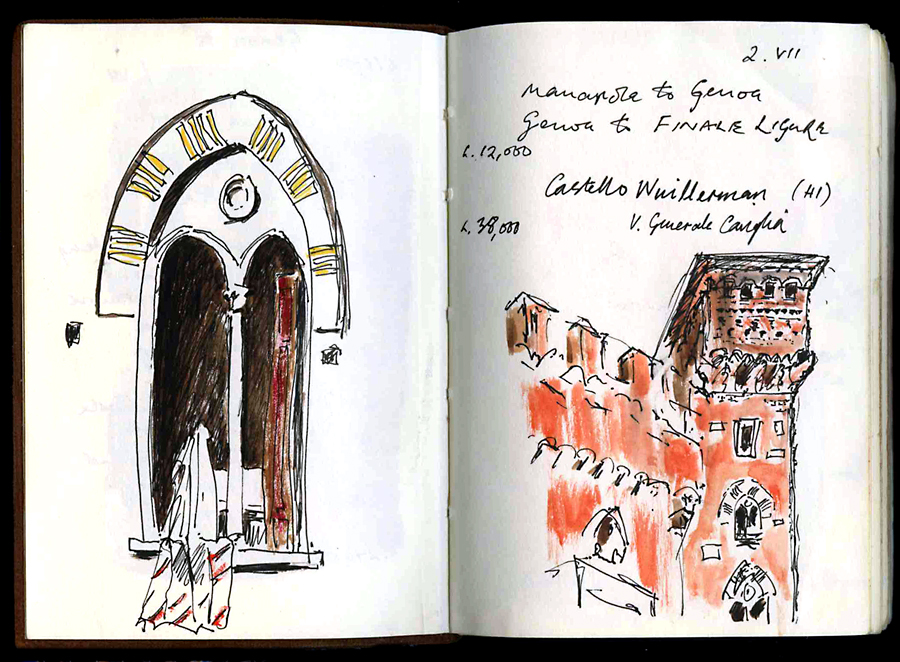 2. VII
Manarola to Genoa
Genoa to FINALE LIGURE
L. 12,000
Castello Wuillerman (HI)
L. 38,000
V. Generale Caviglia